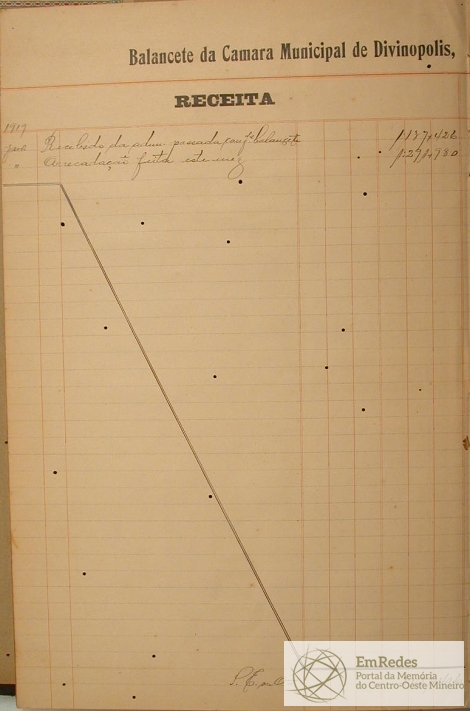 Balancete da Camara Municipal de Divinopolis,
RECEITA
1917
Recebido da adm. passada conf. balancete 1:137,422
" Arrecadação feita este mez 1:271,980
EmRedes
Portal da Memória
do Centro-Oeste Mineiro